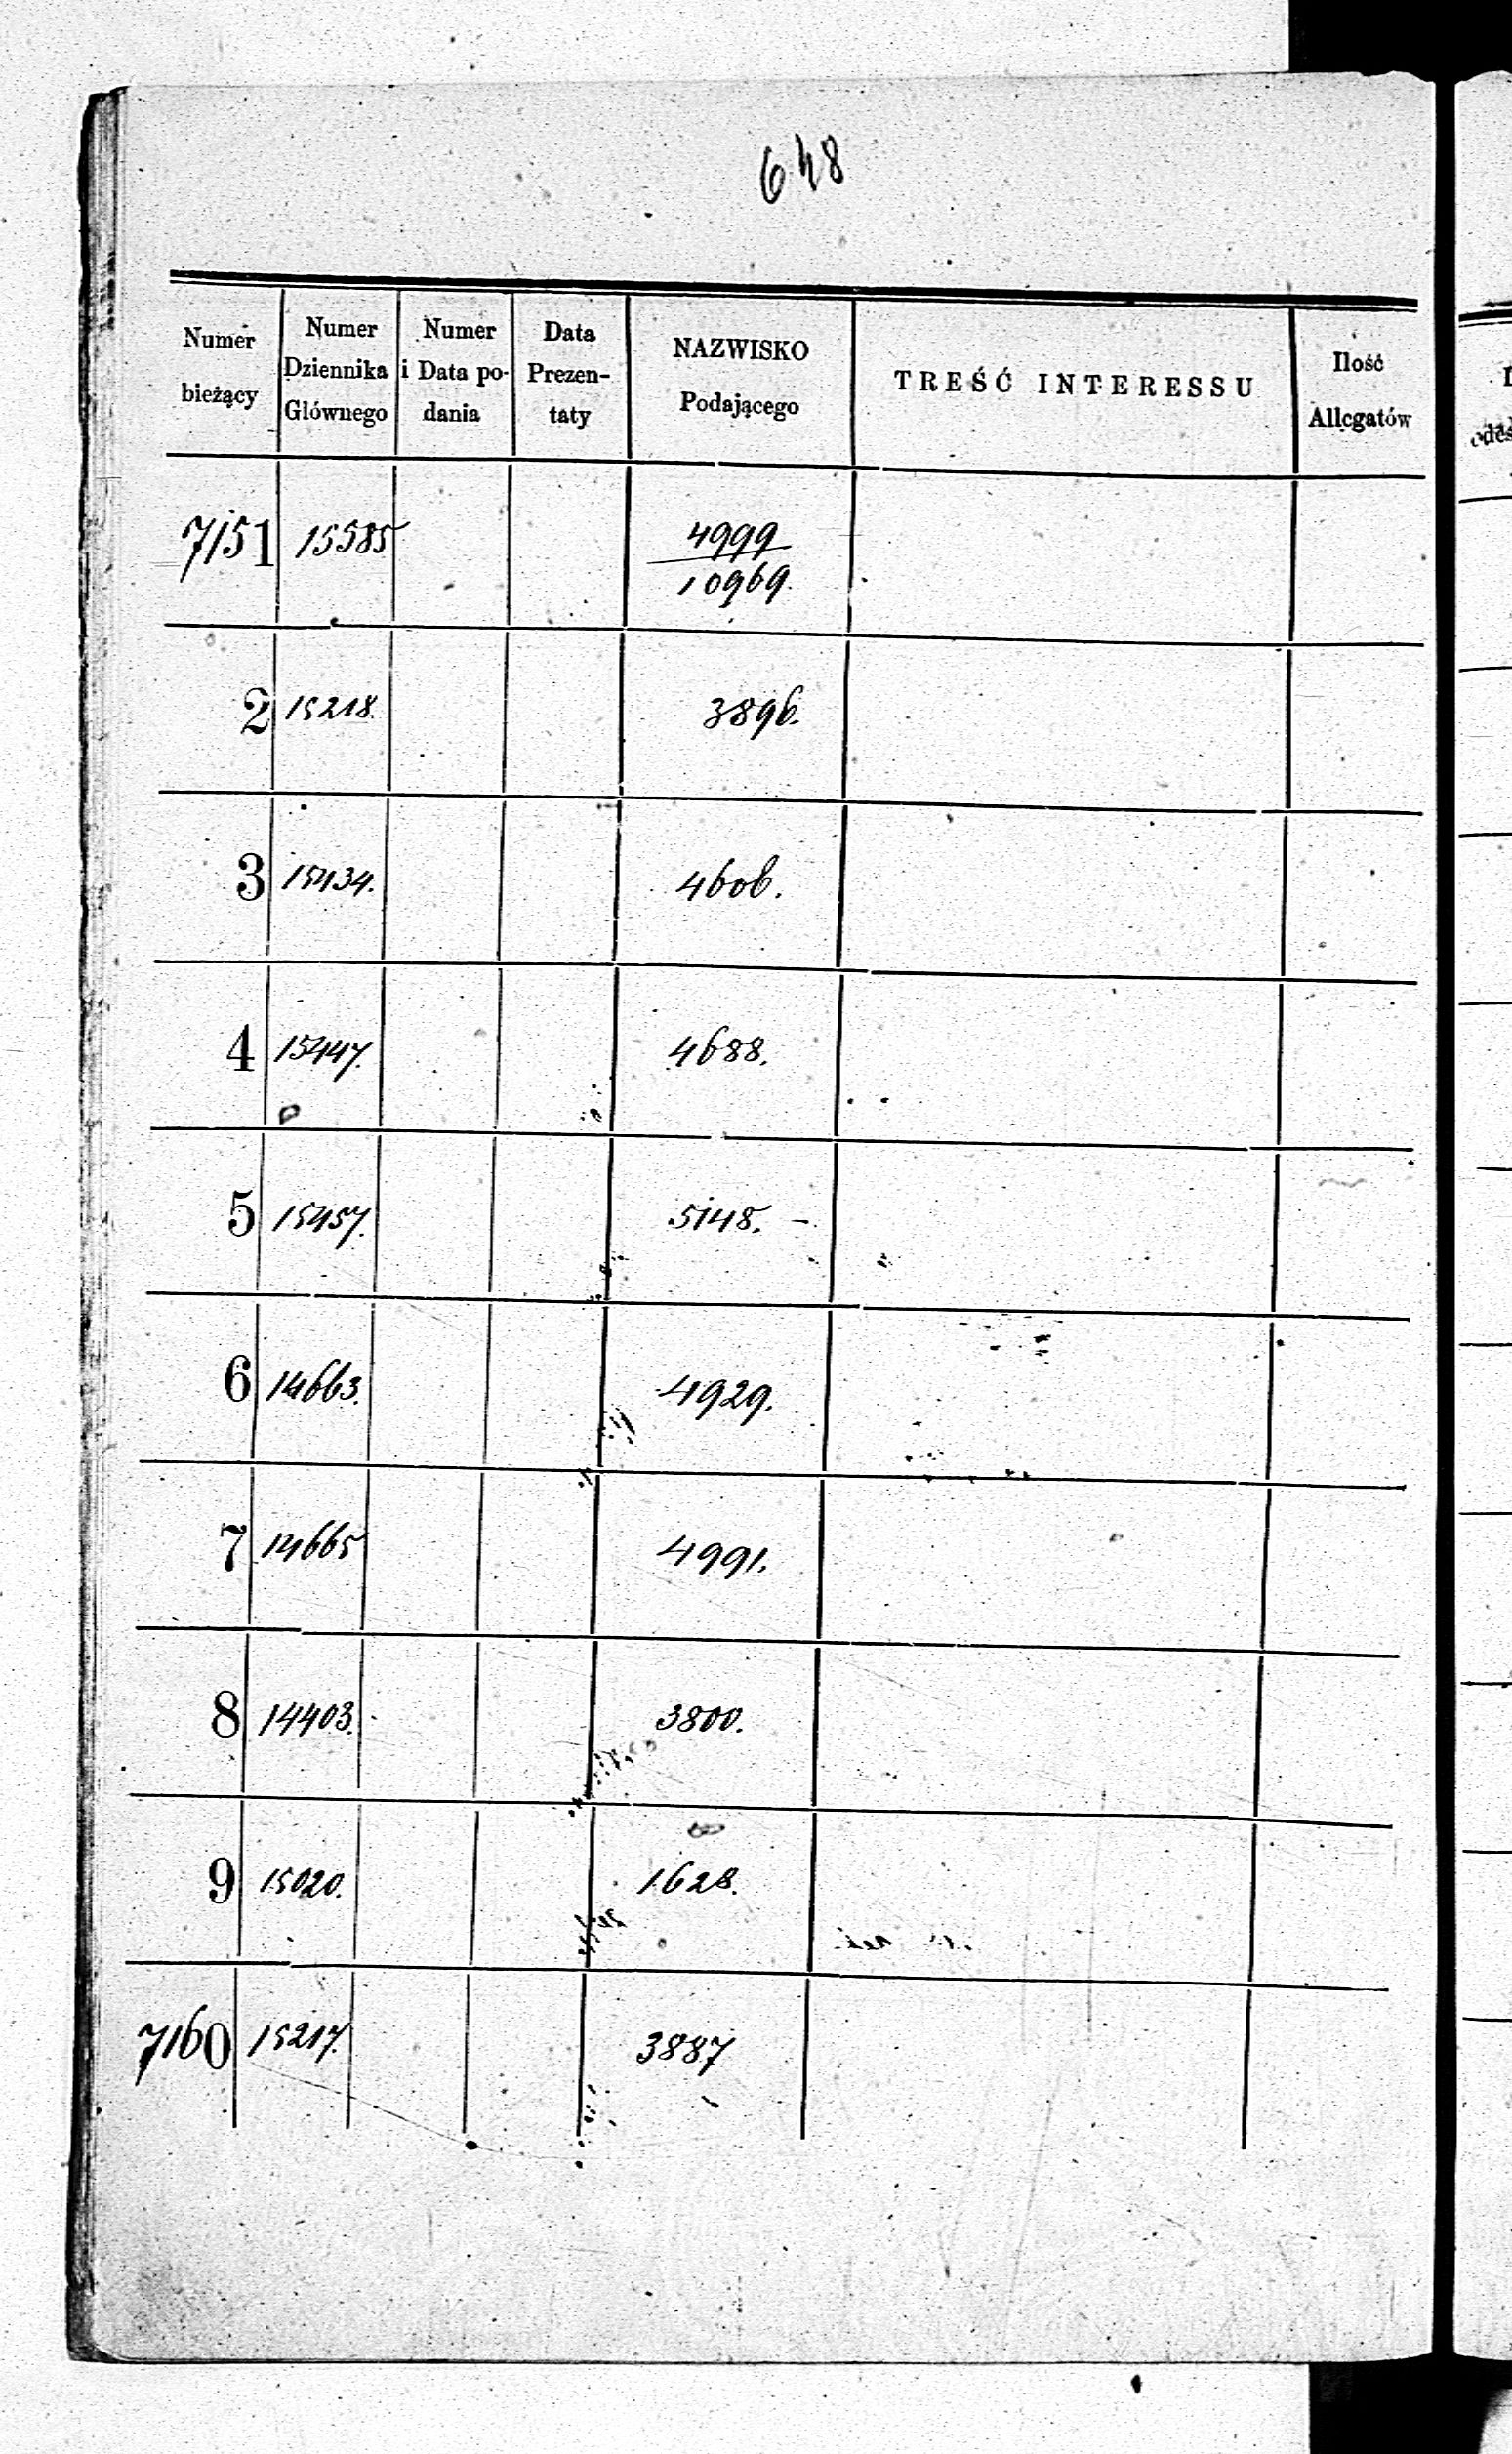 648
Numer bieżący
Numer Dziennika Głównego
Numer i Data podania
Data Prezentaty
NAZWISKO Podającego
TREŚĆ INTERESSU
Ilość Allegatów
7151 15585 4999
10969.
2 15218. 3896.
3 15434. 4606.
4 15447. 4688.
5 15457. 5148. -
6 14663. 4929.
7 14665 4991.
8 14403. 3800.
9 15020. 1628.
7160 15217. 3887